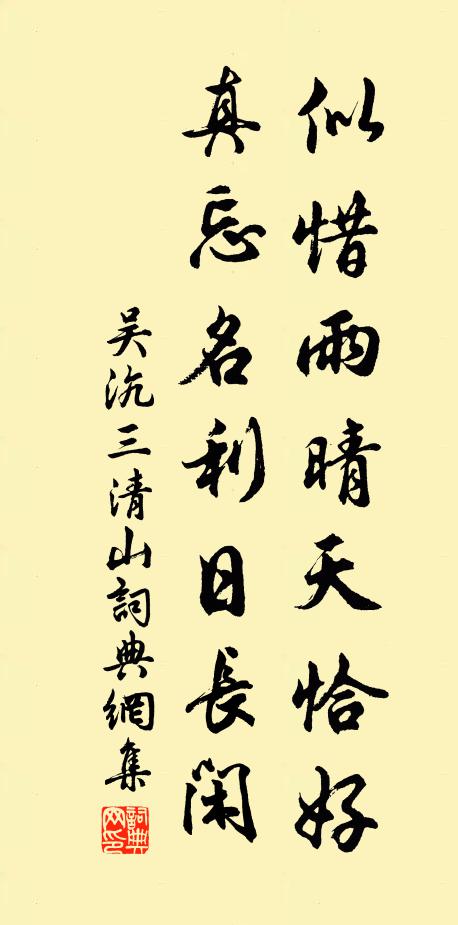 似惜雨晴天恰好
真忘名利日長閑
吴沆三清山詞典網集
詞典
网印